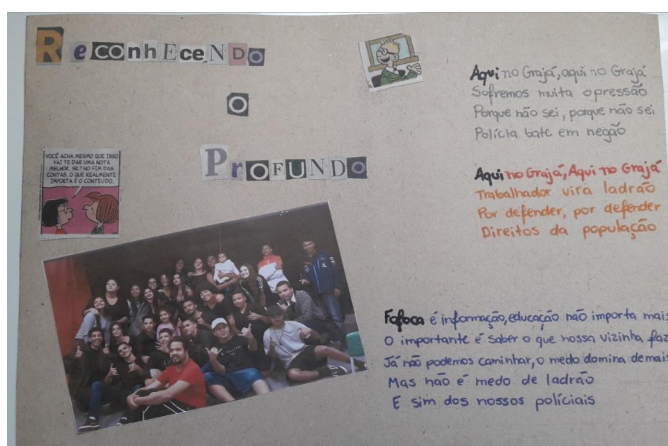 ReconhEceNDo
o
PrOFUNDo
VOCÊ ACHA MESMO QUE ISSO
VAI TE DAR UMA NOTA
MELHOR, SR.? NO FIM DAS
CONTAS, O QUE REALMENTE
IMPORTA É O CONTEÚDO.
Aqui no Grajá, aqui no Grajá
Sofremos muita opressão
Porque não sei, porque não sei
Polícia bate em negão
Aqui no Grajá, Aqui no Grajá
Trabalhador vira ladrão
Por defender, por defender
Direitos da população
Fofoca é informação, educação não importa mais
O importante é saber o que nossa vizinha faz
Já não podemos caminhar, o medo domina demais
Mas não é medo de ladrão
E sim dos nossos políciais